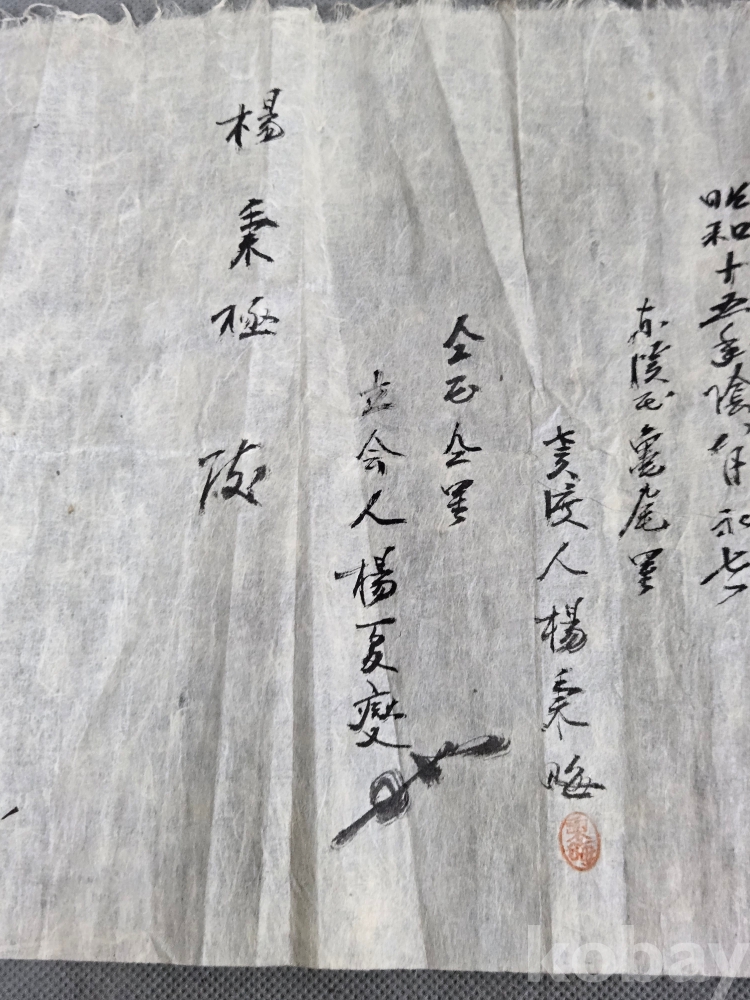 昭和十五年陰八月初七日
東溪面龜尾里
賣渡人楊秉晦
仝面仝里
立会人楊夏燮
楊秉極
kobay